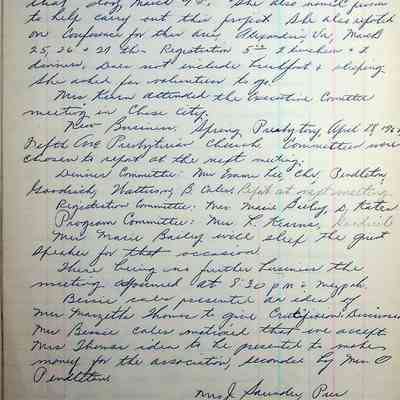 that day, March
to help carry out this project. She also reported
on Conference for this area, Alexandria Va, March
25, 26 & 27 th. Registration 5 00 2 lunches & 2
dinners, does not include breakfast & sleeping.
She asked for volunteers to go.
Mrs. Kearn attended the Executive Committee
meeting in Chase City.
New Business: Spring Presbytery, April 18,
Fifth Ave Presbyterian Church. Committees were
chosen to report at the next meeting.
Dinner Committee: Mrs Emma Lee Chr. Pendleton,
Goodrich, Watkins, B Coles, Report at next meeting
Registration Committee: Mrs. Marie Bailey, S. Kates
Program Committee: Mrs. L. Kearns,
Mrs. Marie Bailey will sleep the guest
speaker for that occasion.
There being no further business the
meeting adjourned at 8:30 p.m.
Bessie Coles presented an idea of
Mrs Thomas to give
Mrs Bessie Coles motioned that we accept
Mrs Thomas idea to be presented to make
money for the association, seconded by Mrs. O
Pendleton.
Mrs J. Saunders, Pres